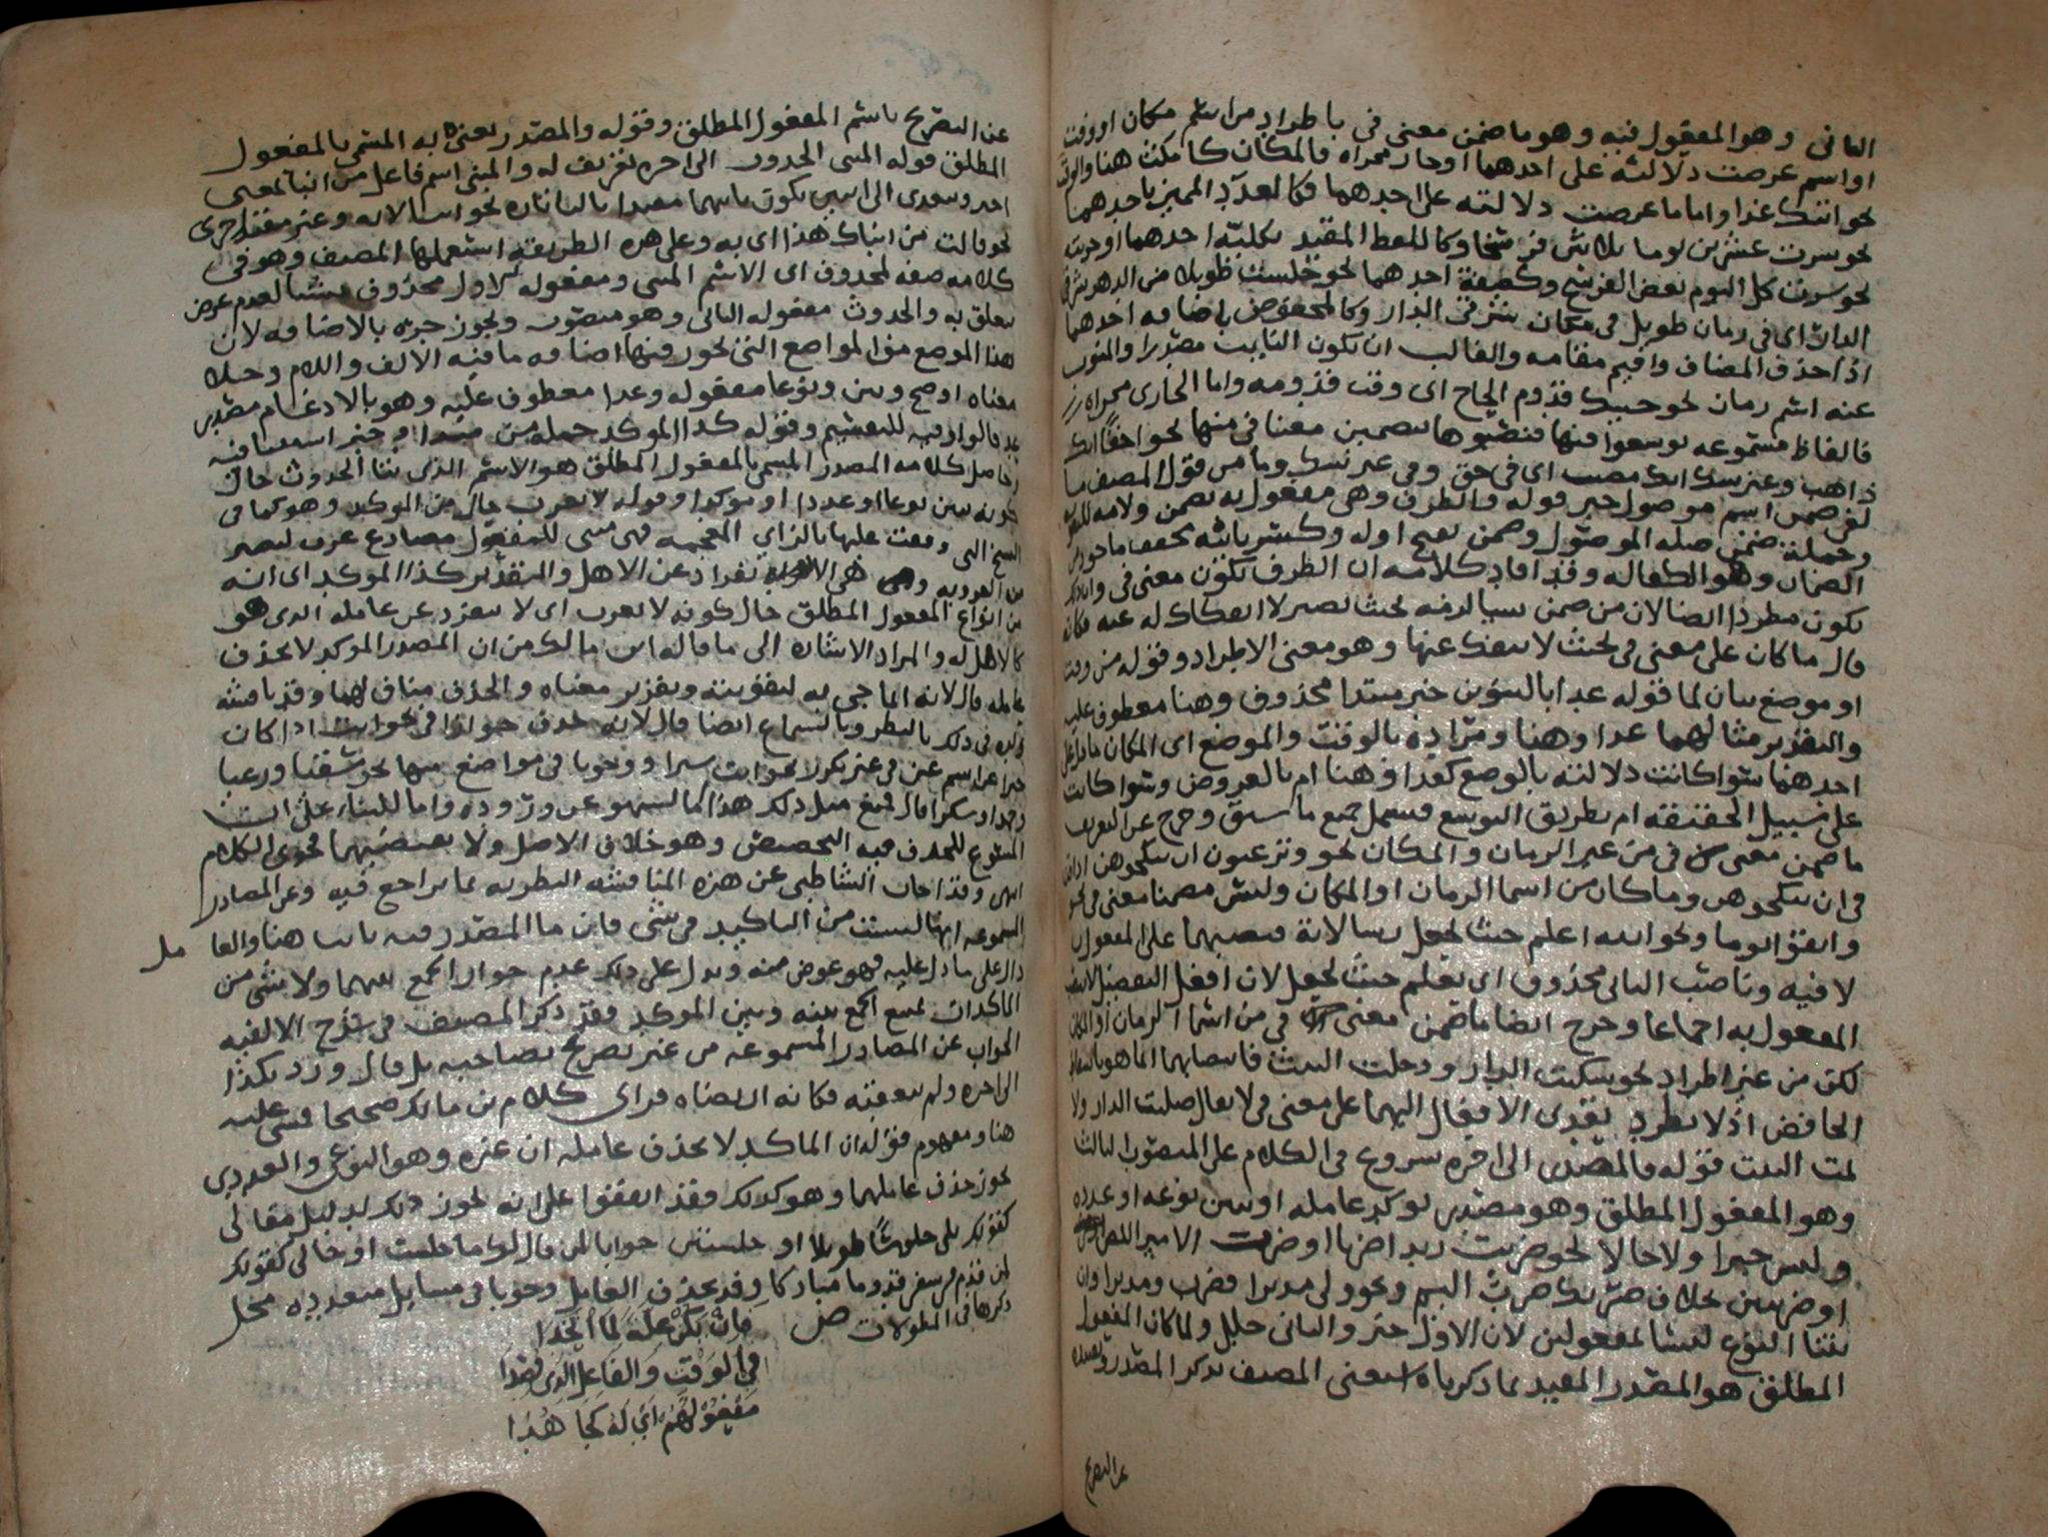 الثاني وهو المفعول فيه وهو ما ضمن معنى في باطراد من اسم مكان او وقت
او اسم عرضت دلالته على احدهما او جار مجراه فالمكان كامكث هنا والوقت
نحو اتتك غدا واما ما عرضت دلالته على احدهما فكالعدد المميز باحدهما
نحو سرت عشرين يوما ثلاثين فرسخا وكاللفظ المقيد بكليته احدهما او جزيته
نحو سرت كل اليوم بعض الفرسخ وكصفة احدهما نحو جلست طويلا من الدهر شرقي
الدار اي في زمان طويل في مكان شرقي الدار وكالمخفوض باضافه احدهما
اذا حذف المضاف واقيم مقامه والغالب ان يكون النايب مصدرا والمنوب
عنه اسم زمان نحو جيتك قدوم الحاج اي وقت قدومه واما الجاري مجراه
فالفاظ مسموعه توسعوا فيها فنصبوها بتضمين معنا في منها نحو احقا انك
ذاهب وغير شك انك مصيب اي في حق وفي غير شك وما من قول المصنف ما
ضمن اسم موصول خبر قوله والظرف وهي مفعول به بضمن ولامه
وجملة ضمن صله الموصول وضمن بفتح اوله وكسر ثانيه مخفف ماخوذ من
الضمان وهو الكفاله وقد افاد كلامه ان الظرف يكون معنى في وانه
يكون مطردا ايضا لان من ضمن شيا لزمه بحيث يصير لا انفكاك له عنه فكانه
قال ما كان على معنى في بحيث لا ينفك عنها وهو معنى الاطراد وقوله من وقت
او موضع بيان لما قوله غدا بالتنوين خبر مبتدا محذوف وهنا معطوف عليه
والتقدير مثالهما غدا وهنا ومراده بالوقت والموضع اي المكان ما دل على
احدهما سوا كانت دلالته بالوضع كغدا وهنا ام بالعروض وسوا كانت
على سبيل الحقيقه ام بطريق التوسع فيشمل جميع ما سبق وخرج عن التعريف
ما ضمن معنى في من غير الزمان والمكان نحو وترغبون ان تنكحوهن
في ان تنكحوهن وما كان من اسما الزمان او المكان وليس مضمنا معنى في نحو
واتقوا يوما ونحو الله اعلم حيث يجعل رسالاته فنصبهما على المفعول به
لا فيه وناصب الثاني محذوف اي يعلم حيث يجعل لان افعل التفضيل لا ينصب
المفعول به اجماعا وخرج ايضا ما ضمن معنى في من اسما الزمان او المكان
لكن من غير اطراد نحو سكنت الدار ودخلت البيت فانتصابهما انما هو باسقاط
الخافض اذ لا يطرد تعدى الافعال اليهما على معنى في لا يقال صليت الدار ولا
نمت البيت قوله فالمصدر الى اخره شروع في الكلام على المنصوب الثالث
وهو المفعول المطلق وهو مصدر يوكد عامله او يبين نوعه او عدده
وليس خبرا ولا حالا نحو ضربت زيدا ضربا او ضرب الامير اللص
او ضربتين بخلاف ضربك ضرب اليم ونحو ولى مدبرا فضرب ومدبرا وان
بينا النوع ليسا مفعولين لان الاول خبر والثاني حال ولما كان المفعول
المطلق هو المصدر المقيد بما ذكرناه استغنى المصنف بذكر المصدر
عن التصريح
عن التصريح باسم المفعول المطلق وقوله والمصدر يعني به المسمى بالمفعول
المطلق قوله المنبي الحدوث الى اخره تعريف له والمنبي اسم فاعل من انبا بمعنى
اخبر ويتعدى الى اثنين يكون ثانيهما مقيدا بالبا تاره نحو انبا بالاله وغير مقيد اخرى
نحو قالت من انباك هذا اي به وعلى هذه الطريقه استعملها المصنف وهو في
كلامه صفه لمحذوف اي الاسم المنبي ومفعوله الاول محذوف لعدم غرض
يتعلق به والحدوث مفعوله الثاني وهو منصوب ويجوز جره بالاضافه لان
هذا الموضع من المواضع التي يجوز فيها اضافه ما فيه الالف واللام
معناه اوضح وبين ونوعا مفعوله وعدا معطوف عليه وهو بالادغام مصدر
عد فالواو فيه للتقسيم وقوله كذا الموكد جمله من مبتدا وخبر
حاصل كلامه المصدر المسمى بالمفعول المطلق هو الاسم الذي ينبا الحدوث حال
كونه يبين نوعا او عددا او موكدا وقوله لا يعرب حال من الموكد وهو كما في
النسخ التي وقفت عليها بالزاي المعجمه فهي مبنى للمفعول مضارع عزب
من العزوبه وهي الانفراد عن الاهل والتقدير كذا الموكد اي انه
من انواع المفعول المطلق حال كونه لا يعزب اي لا ينفرد عن عامله الذي هو
كالاهل له والمراد الاشاره الى ما قاله ابن مالك من ان المصدر الموكد لا يحذف
عامله قال لانه انما جي به لتقويته وتقرير معناه والحذف مناف لهما وقد ناقشه
ولده في ذلك بالنظر وبالسماع ايضا قال لانه حذف جوازا في نحو انت اذا كان
خبرا عن اسم عين في غير تكرر نحو انت سيرا ووجوبا في مواضع منها نحو سقيا ورعيا
وحمدا وشكرا قال فمنع مثل ذلك هذا اما لسهو عن وروده واما للبناء على ان
المسوغ للحذف فيه التخصيص وهو خلاف الاصل ولا يقتضيهما فحوى الكلام
انتهى وقد اجاب الشاطبي عن هذه المناقشه النظريه بما يراجع فيه وعن المصادر
المسموعه انها ليست من التاكيد في شي فان ما المصدر فيه نايبا هنا والعا
مل
دال على ما دل عليه فهو عوض منه ويدل على ذلك عدم جواز الجمع بينهما ولا شي من
التاكدات يمنع الجمع بينه وبين الموكد فقد ذكر المصنف في شرح الالفيه
الجواب عن المصادر المسموعه من غير تصريح بصاحبه بل قال ورد بكذا
الى اخره ولم يتعقبه فكانه ارتضاه فراى كلام بن مالك صحيحا فمشى عليه
هنا ومفهوم قوله ان الماكد لا يحذف عامله ان غيره وهو النوعي والعددي
يجوز حذف عاملهما وهو كذلك فقد اتفقوا على انه يجوز ذلك لدليل مقالي
كقولك بلى جلوسا طويلا او جلستين جوابا لمن قال لك ما جلست او حالي كقولك
لمن قدم من سفر قدوما مباركا وقد يحذف العامل وجوبا في مسايل متعدده محل
ذكرها في المطولات ص فان يكن علة لما اتحدا
في الوقت والفاعل الذي قصدا
مفعولهم اي له كجا هدا